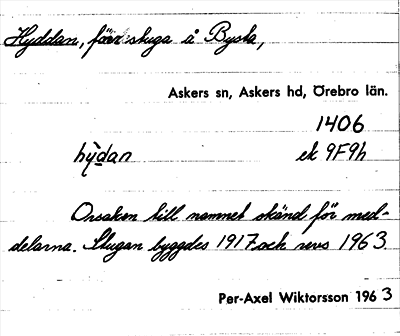 Hyddan, förr stuga å Bysta,
Askers sn, Askers hd, Örebro län.
1406
hỳdan ek 9F9h
Orsaken till namnet okänd för med-
delarna. Stugan byggdes 1917 och revs 1963.
Per-Axel Wiktorsson 1963